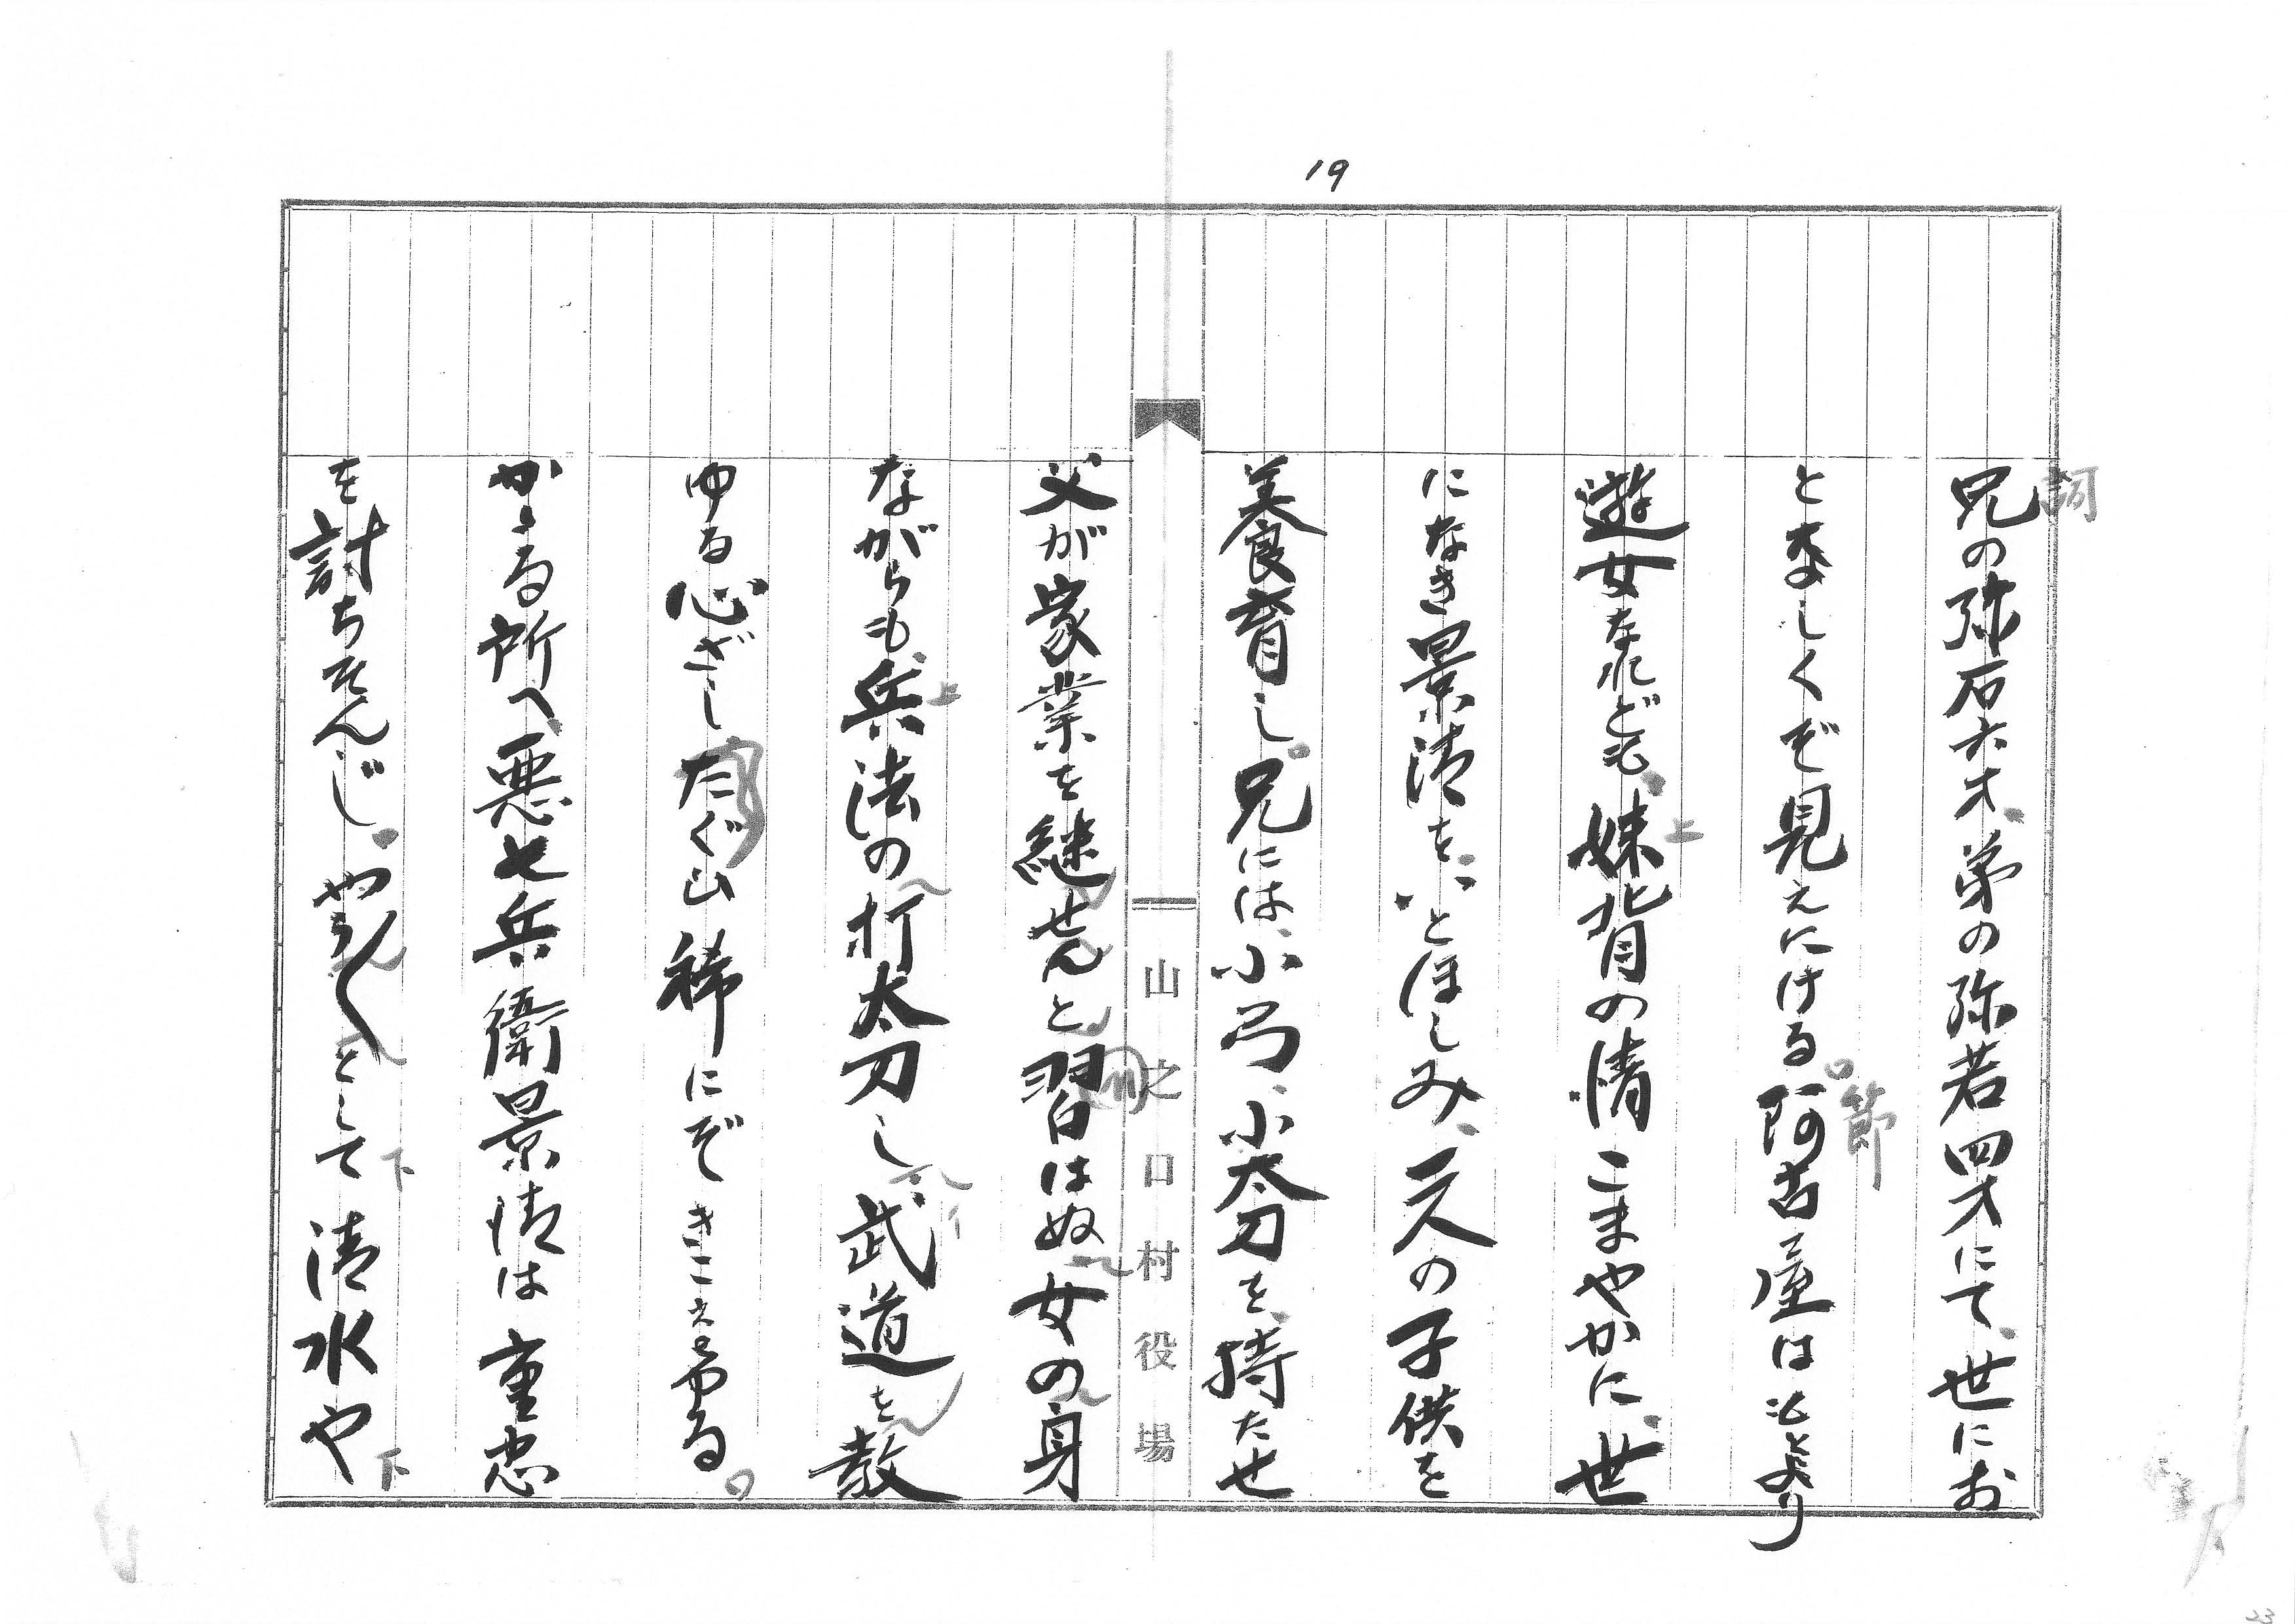 19
詞
兄の弥石六才、弟の弥若四才にて、世にお
となしくぞ見えにける。節 阿古屋は もとより
遊女なれども、妹背の情こまやかに、世
になき景清を、いとほしみ、二人の子供を
養育し。兄には、小弓、小太刀を、持たせ
山之口村役場
父が家業を継せんと習はぬ女の身
ながらも、兵法の打太刀し、武道を教
ゆる心ざしたぐい稀にぞきこえける。
かゝる所へ、悪七兵衛景清は重忠
を討ちそんじ、やう〳〵として清水や
23